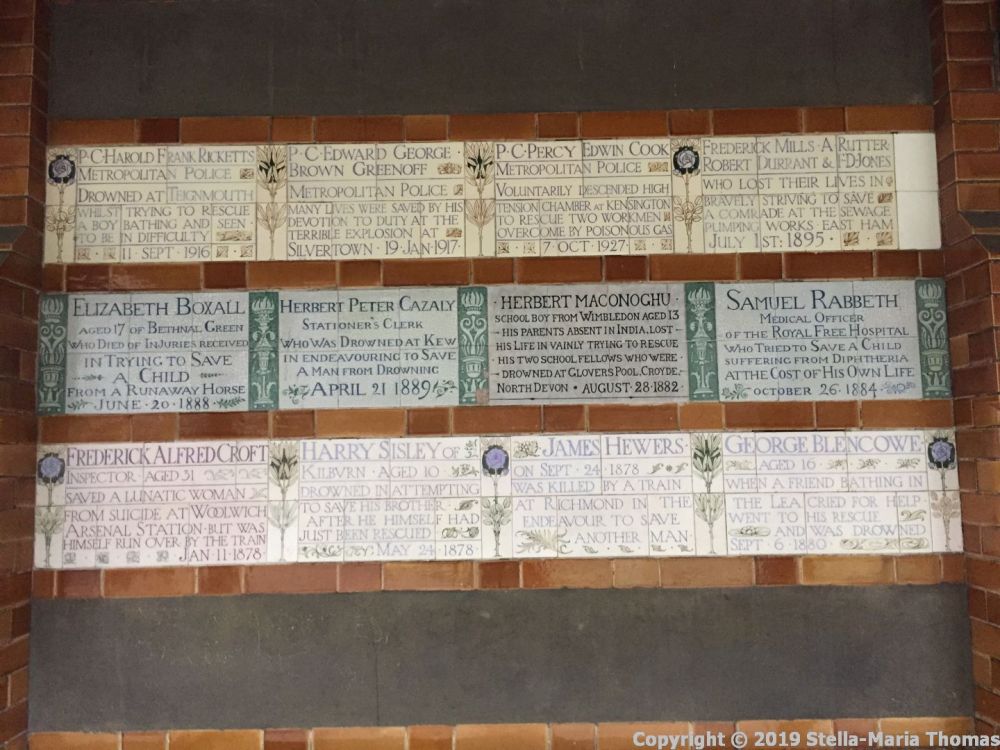 P·C·HAROLD FRANK RICKETTS
METROPOLITAN POLICE
DROWNED AT TEIGNMOUTH
WHILST TRYING TO RESCUE
A BOY BATHING AND SEEN
TO BE IN DIFFICULTY
11 SEPT 1916
P·C·EDWARD GEORGE
BROWN GREENOFF
METROPOLITAN POLICE
MANY LIVES WERE SAVED BY HIS
DEVOTION TO DUTY AT THE
TERRIBLE EXPLOSION AT
SILVERTOWN · 19·JAN·1917
P·C·PERCY EDWIN COOK
METROPOLITAN POLICE
VOLUNTARILY DESCENDED HIGH
TENSION CHAMBER AT KENSINGTON
TO RESCUE TWO WORKMEN
OVERCOME BY POISONOUS GAS
7 OCT 1927
FREDERICK MILLS · A RUTTER
ROBERT DURRANT & F·D·JONES
WHO LOST THEIR LIVES IN
BRAVELY STRIVING TO SAVE
A COMRADE AT THE SEWAGE
PUMPING WORKS EAST HAM
JULY 1ST: 1895
ELIZABETH BOXALL
AGED 17 OF BETHNAL GREEN
WHO DIED OF INJURIES RECEIVED
IN TRYING TO SAVE
A CHILD
FROM A RUNAWAY HORSE
JUNE · 20 · 1888
HERBERT PETER CAZALY
STATIONER'S CLERK
WHO WAS DROWNED AT KEW
IN ENDEAVOURING TO SAVE
A MAN FROM DROWNING
APRIL 21 1889
HERBERT MACONOGHU
SCHOOL BOY FROM WIMBLEDON AGED 13
HIS PARENTS ABSENT IN INDIA, LOST
HIS LIFE IN VAINLY TRYING TO RESCUE
HIS TWO SCHOOL FELLOWS WHO WERE
DROWNED AT GLOVERS POOL, CROYDE,
NORTH DEVON · AUGUST·28·1882
SAMUEL RABBETH
MEDICAL OFFICER
OF THE ROYAL FREE HOSPITAL
WHO TRIED TO SAVE A CHILD
SUFFERING FROM DIPHTHERIA
AT THE COST OF HIS OWN LIFE
OCTOBER 26·1884
FREDERICK ALFRED CROFT
INSPECTOR AGED 31
SAVED A LUNATIC WOMAN
FROM SUICIDE AT WOOLWICH
ARSENAL STATION·BUT WAS
HIMSELF RUN OVER BY THE TRAIN
JAN·11·1878
HARRY SISLEY OF
KILBVRN · AGED 10
DROWNED IN ATTEMPTING
TO SAVE HIS BROTHER
AFTER HE HIMSELF HAD
JUST BEEN RESCUED
MAY 24·1878
JAMES HEWERS
ON SEPT·24 1878
WAS KILLED BY A TRAIN
AT RICHMOND IN THE
ENDEAVOUR TO SAVE
ANOTHER MAN
GEORGE BLENCOWE
AGED 16
WHEN A FRIEND BATHING IN
THE LEA CRIED FOR HELP
WENT TO HIS RESCUE
AND WAS DROWNED
SEPT 6·1880
Copyright © 2019 Stella-Maria Thomas